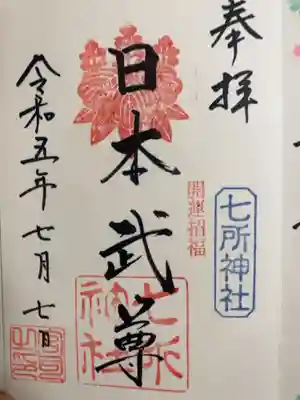 奉拝
七所神社
開運招福
日本武尊
七所神社
令和五年七月七日